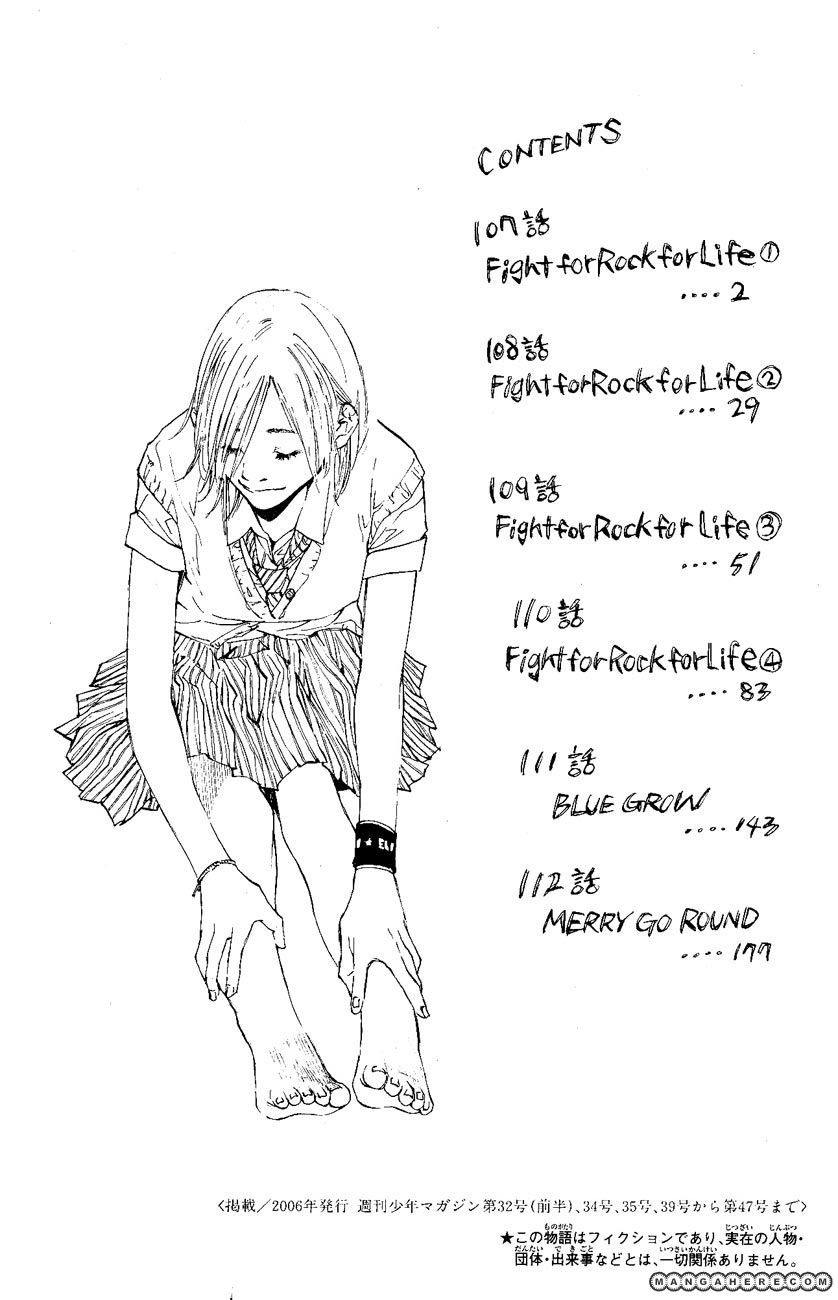 CONTENTS
107話
Fight for Rock for Life①
‥‥2
108話
Fight for Rock for Life②
‥‥29
109話
Fight for Rock for Life③
‥‥51
110話
Fight for Rock for Life④
‥‥83
111話
BLUE GROW
‥‥143
112話
MERRY GO ROUND
‥‥177
★ EL
〈掲載／2006年発行 週刊少年マガジン第32号(前半)、34号、35号、39号から第47号まで〉
★この物語はフィクションであり、実在の人物・
団体・出来事などとは、一切関係ありません。
MANGAHERE.COM